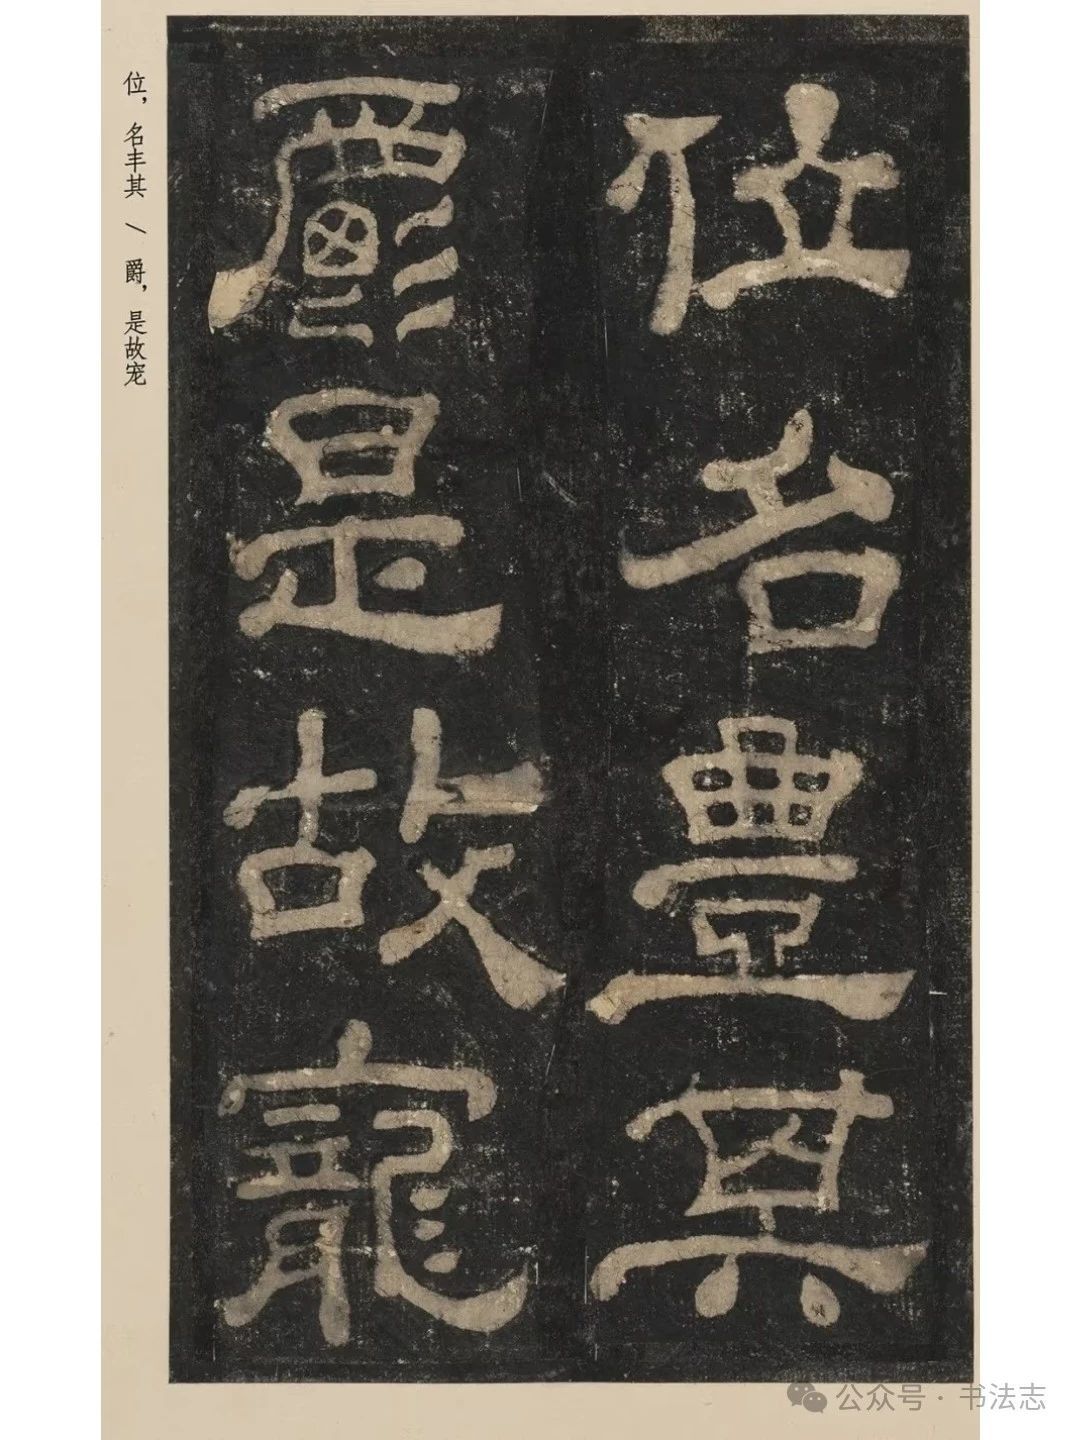 位名豊其
爵是故寵
位，名丰其 \ 爵，是故宠
公众号 · 书法志